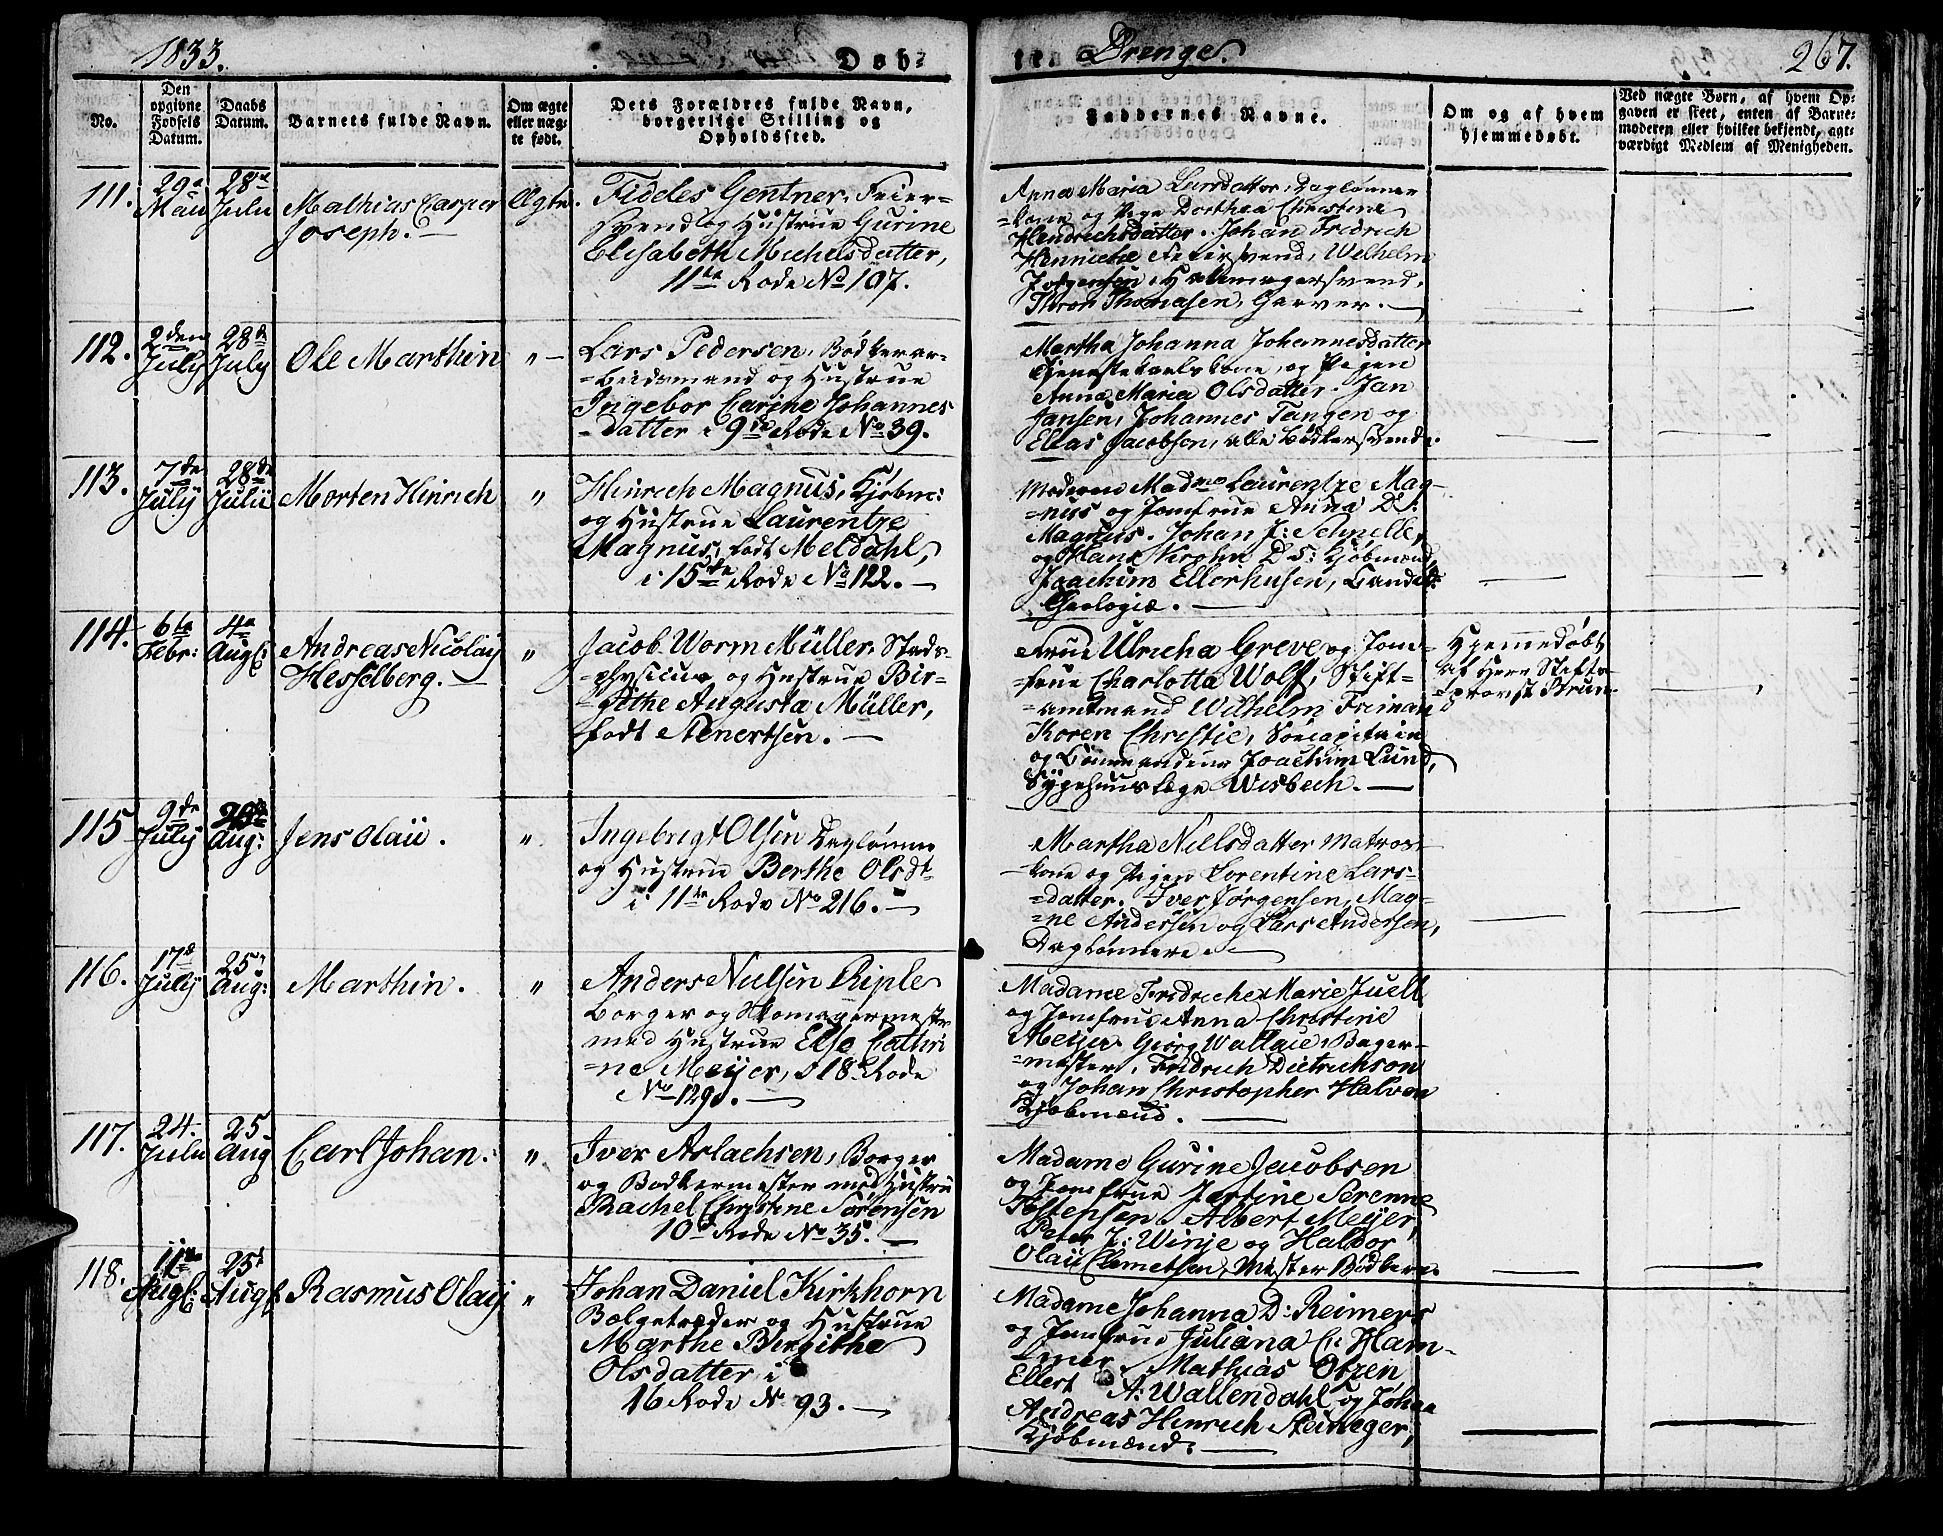 1833.
Døb=
te
Drenge.
267.
No.
Den
opgivne
Fødsels
Datum.
Daabs
Datum.
Barnets fulde Navn.
Om ægte
eller uæg-
te født.
Dets Forældres fulde Navn,
borgerlige Stilling og
Opholdssted.
Faddernes Navne.
Om og af hvem
hjemmedøbt.
Ved uægte Børn, af hvem Op-
gaven er skeet, enten af Barne-
moderen eller hvilket bekjendt, agt-
værdigt Medlem af Menigheden.
111.
29de
Maii
28de
Julii
Mathias Casper
Joseph. —
Ægte.
Fideles Gentner, Feier-
svend og Hustrue Gurine
Elisabeth Michelsdatter,
11te Rode No 107.
Anna Maria Larsdatter, Daglønner
=kone og Pige Dorthea Christine
Hendrichsdatter. Johan Fridrich
Henniche Feiersvend, Wilhelm
Jørgensen, Hattemagersvend,
Thomasen, Garver. —
112.
2den
July
28de
July
Ole Marthin
" —
Lars Pedersen, Bødkerar-
=beidsmand og Hustrue
Ingebor Carine Johannes
=datter i 9de Rode No 39.
Martha Johanna Johannesdatter
Tjenestekarls kone, og Pigen
Anna Maria Olsdatter. Jan
Jansen, Johannes Tangen og
Elias Jacobsen, alle Bødkersvende.
113.
7de
July
28de
Julii
Morten Hinrich
"
Hinrich Magnus, Kjøbm:
og Hustrue Laurentze
Magnus, født Meldahl,
i 15de Rode No 122. —
Moderen Madme Laurentze Mag-
=nus og Jomfrue Anna D S:
Magnus. Johan J: Schnelle,
og Hans Krohn D S: Kjøbmænd,
Joachim Ellerhusen, Candid:
Theologiæ. —
114.
6te
Febr:
4de
Aug:
Andreas Nicolay
Hesselberg. —
"
Jacob Worm Müller, Stads-
=physicus og Hustrue Bir-
=githe Augusta Müller,
født Stenersen. —
Frue Ulricha Greve og Jom-
=frue Charlotta Wolff, Stift-
=amtmand Wilhelm Friman
Koren Christie, Søecapitain
og Commandeur Joachim Lund,
Sygehuuslæge Wisbech. —
Hjemmedøbt
af Herr Stifts-
=provst Brun.
115
9de
July
Aug:
Jens Olaii.
"
Ingebrigt Olsen Daglønner
og Hustrue Berthe Olsdt-
i 11te Rode No 216. —
Martha Nielsdatter Matros-
=kone og Pigen Lorentine Lars-
=datter. Iver Jørgensen, Mag-
=ne Andersen og Lars Andersen,
Daglønnere. —
116.
17de
July
25de
Aug:
Marthin.
"
Anders Nielsen Riple
Borger og Skomagermester
med Hustrue Else Cathri
=ne Meijer, i 18de Rode
No 129. —
Madame Fridriche Marie Juell
og Jomfrue Anna Christine
Meijer. Georg Wallace, Bager-
=mester, Fridrich Dietrichson
og Johan Christopher Halvon
Kjøbmænd. —
117.
24
Julii
25
Aug
Carl Johan.
"
Iver Aslachsen, Borger
og Bødkermester med Hustru
Rachel Christine Sørensen
10de Rode No 35. —
Madame Gurine Jacobsen
og Jomfrue Jertine Serenne
Tostensen. Albert Meijer,
Peter J: Winje og Haldor
Olaii Clemetsen, Mester Bødkere.
118.
11te
Aug:
25de
Aug:
Rasmus Olaij
"
Johan Daniel Kirkhorn
Bælgetræder og Hustrue
Marthe Birgithe
Olsdatter i
16 Rode No 93. —
Madame Johanna D: Reimers
og Jomfrue Juliana C: Ham-
=mer. Mathias Otzen
Ellert A: Wallendahl og Johan
Andreas Hinrich Steineger,
Kjøbmænd. —